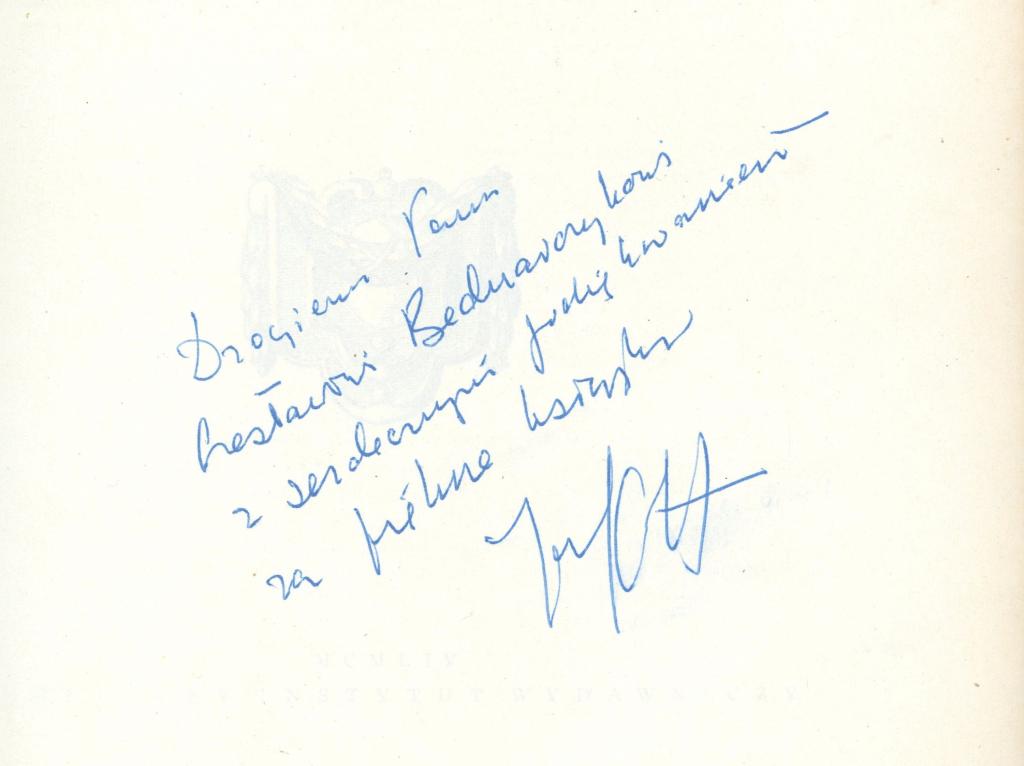 Drogiemu Panu
Czesławowi Bednarczykowi
z serdecznym podziękowaniem
za piękne książki
MCMLIV
INSTYTUT WYDAWNICZY